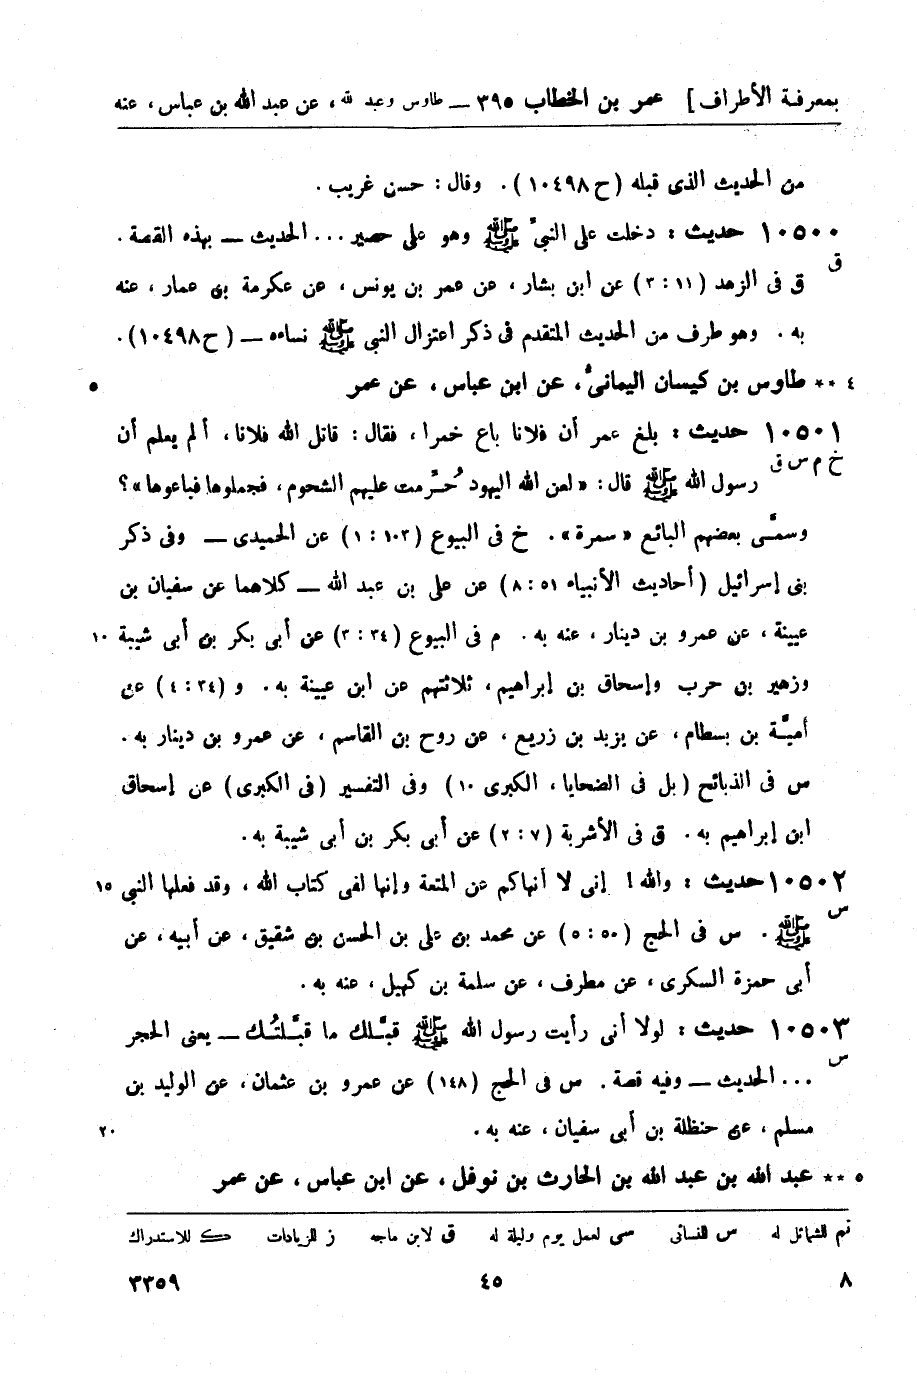 بمعرفة الأطراف] عمر بن الخطاب ٣٩٥ — طاوس وعبد لله، عن عبد الله بن عباس، عنه
من الحديث الذى قبله (ح ١٠٤٩٨). وقال: حسن غريب.
١٠٥٠٠ حديث: دخلت على النبىّ ﷺ وهو على حصير ... الحديث — بهذه القصة.
ق
ق فى الزهد (١١: ٣) عن ابن بشار، عن عمر بن يونس، عن عكرمة بن عمار، عنه
به. وهو طرف من الحديث المتقدم فى ذكر اعتزال النبى ﷺ نساءه — (ح ١٠٤٩٨).
٤ ** طاوس بن كيسان اليمانىُّ، عن ابن عباس، عن عمر ٥
١٠٥٠١ حديث: بلغ عمر أن فلانا باع خمرا، فقال: قاتل الله فلانا، ألم يعلم أن
خ م س ق
رسول الله ﷺ قال: «لعن الله اليهود حُرِّمت عليهم الشحوم، فجملوها فباعوها»؟
وسمَّى بعضهم البائع «سمرة». خ فى البيوع (١٠٣: ١) عن الحميدى — وفى ذكر
بنى إسرائيل (أحاديث الأنبياء ٥١: ٨) عن على بن عبد الله — كلاهما عن سفيان بن
عيينة، عن عمرو بن دينار، عنه به. م فى البيوع (٣٤: ٣) عن أبى بكر بن أبى شيبة ١٠
وزهير بن حرب وإسحاق بن إبراهيم، ثلاثتهم عن ابن عيينة به. و (٣٤: ٤) عن
أميَّة بن بسطام، عن يزيد بن زريع، عن روح بن القاسم، عن عمرو بن دينار به.
س فى الذبائح (بل فى الضحايا، الكبرى ١٠) وفى التفسير (فى الكبرى) عن إسحاق
ابن إبراهيم به. ق فى الأشربة (٧: ٢) عن أبى بكر بن أبى شيبة به.
١٠٥٠٢ حديث: والله! إنى لا أنهاكم عن المتعة وإنها لفى كتاب الله، وقد فعلها النبى ١٥
س
ﷺ. س فى الحج (٥٠: ٥) عن محمد بن على بن الحسن بن شقيق، عن أبيه، عن
أبى حمزة السكرى، عن مطرف، عن سلمة بن كهيل، عنه به.
١٠٥٠٣ حديث: لولا أنى رأيت رسول الله ﷺ قبَّلك ما قبَّلتُك — يعنى الحجر
س
... الحديث — وفيه قصة. س فى الحج (١٤٨) عن عمرو بن عثمان، عن الوليد بن
مسلم، عن حنظلة بن أبى سفيان، عنه به. ٢٠
٥ ** عبد الله بن عبد الله بن الحارث بن نوفل، عن ابن عباس، عن عمر
تم للشمائل له س للنسائى سى لعمل يوم وليلة له ق لابن ماجه ز للزيادات ك للاستدراك
٨ ٤٥ ٣٣٥٩